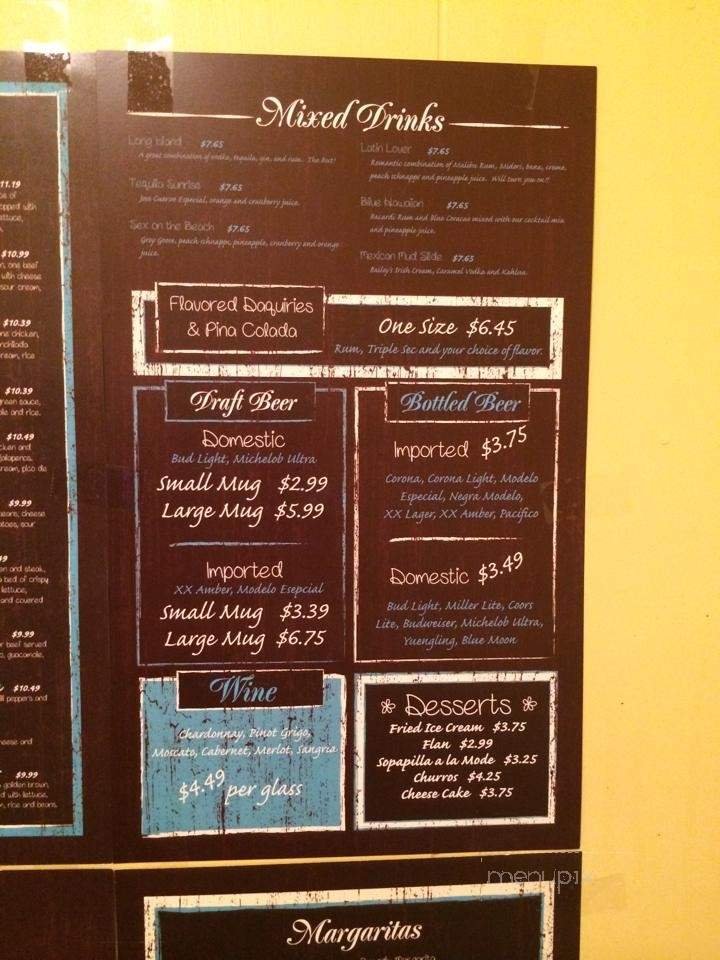 11.19
$10.99
$10.39
$10.39
$10.49
$9.99
$9.99
$10.49
$9.99
Mixed Drinks
Long Island $7.65
A great combination of vodka, tequila, gin, and rum. The Best!
Tequila Sunrise $7.65
Jose Cuervo Especial, orange and cranberry juice.
Sex on the Beach $7.65
Grey Goose, peach schnapps, pineapple, cranberry and orange
juice.
Latin Lover $7.65
Romantic combination of Malibu Rum, Midori, bana, creme,
peach schnapps and pineapple juice. Will turn you on!!
Blue Hawaiian $7.65
Bacardi Rum and Blue Coracao mixed with our cocktail mix
and pineapple juice.
Mexican Mud Slide $7.65
Bailey's Irish Cream, Caramel Vodka and Kahlua.
Flavored Daquiries
& Pina Colada
One Size $6.45
Rum, Triple Sec and your choice of flavor.
Draft Beer
Domestic
Bud Light, Michelob Ultra
Small Mug $2.99
Large Mug $5.99
Imported
XX Amber, Modelo Esepcial
Small Mug $3.39
Large Mug $6.75
Bottled Beer
Imported $3.75
Corona, Corona Light, Modelo
Especial, Negra Modelo,
XX Lager, XX Amber, Pacifico
Domestic $3.49
Bud Light, Miller Lite, Coors
Lite, Budweiser, Michelob Ultra,
Yuengling, Blue Moon
Wine
Chardonnay, Pinot Grigo,
Moscato, Cabernet, Merlot, Sangria
$4.49 per glass
Desserts
Fried Ice Cream $3.75
Flan $2.99
Sopapilla a la Mode $3.25
Churros $4.25
Cheese Cake $3.75
menupix
Margaritas